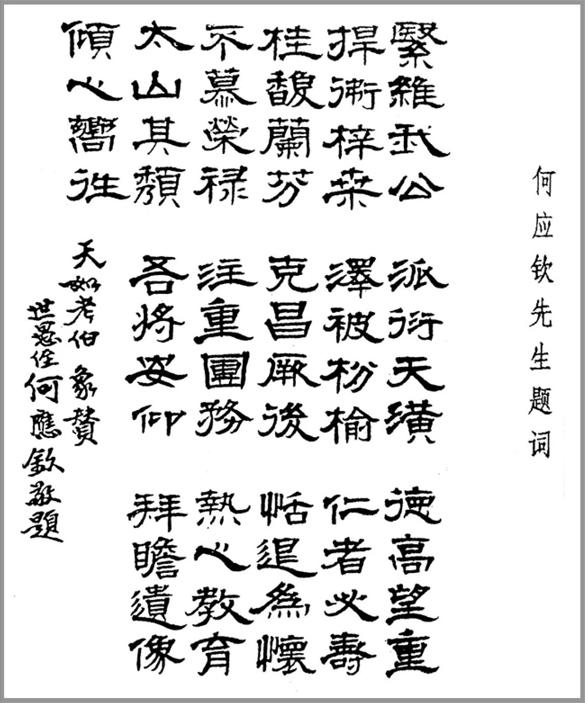 何应钦先生题词
繄維我公 派衍天潢 德高望重
捍衛梓桑 澤被枌榆 仁者必壽
桂馥蘭芬 克昌厥後 恬退爲懷
不慕榮禄 注重團務 熱心教育
太山其頹 吾將安仰 拜瞻遺像
傾心嚮往
天如老伯象贊
世愚侄何應欽敬題